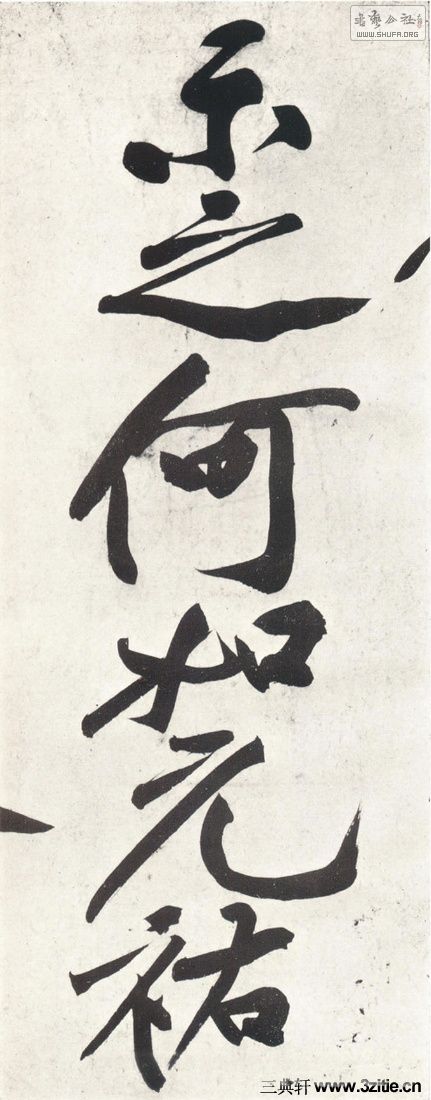 示之何如元祐
書法公社
WWW.SHUFA.ORG
三典轩 www.3zitie.cn